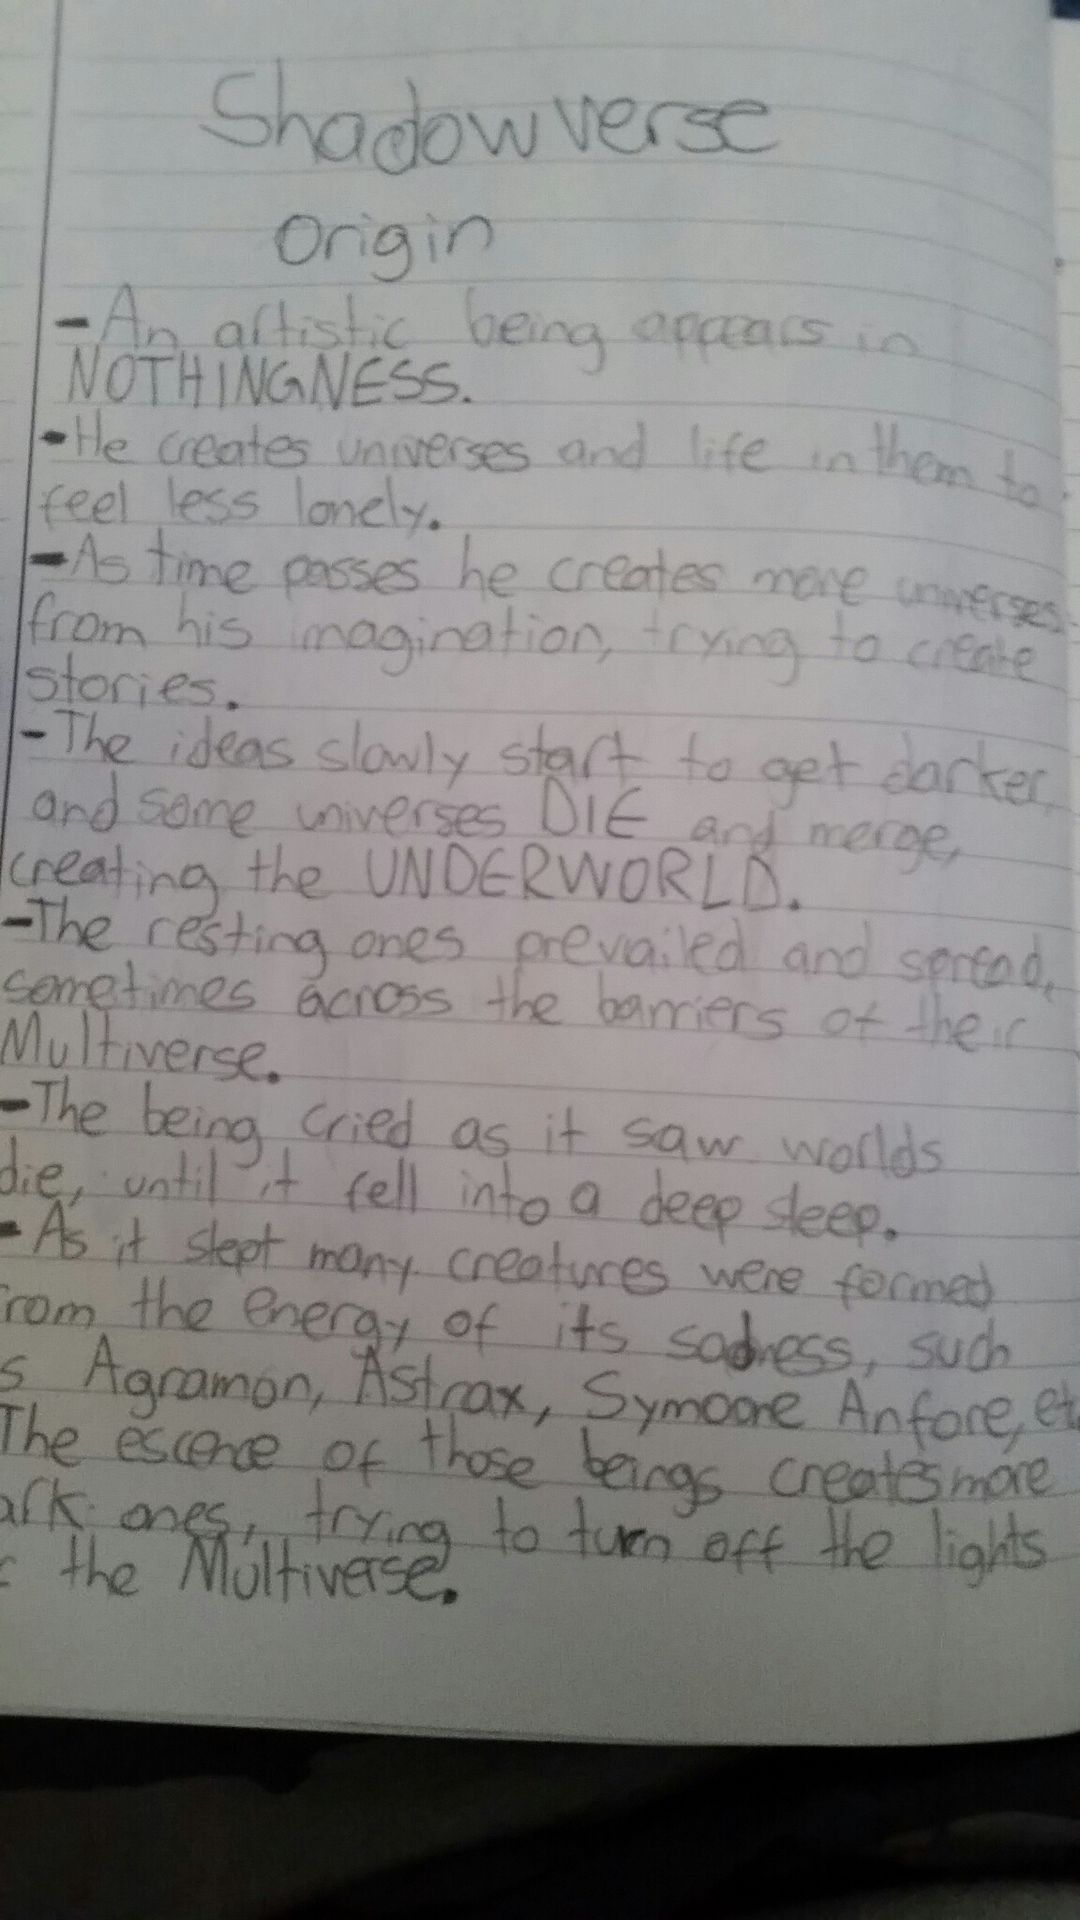 Shadowverse
Origin
-An artistic being appears in
NOTHINGNESS.
-He creates universes and life in them to
feel less lonely.
-As time passes he creates more universes
from his imagination, trying to create
stories.
-The ideas slowly start to get darker,
and some universes DIE and merge,
creating the UNDERWORLD.
-The resting ones prevailed and spread,
sometimes across the barriers of their
Multiverse.
-The being cried as it saw worlds
die, until it fell into a deep sleep.
-As it slept many creatures were formed
rom the energy of its sadness, such
s Agramon, Astrax, Symoore Anfore, etc
The escence of those beings creates more
ark ones, trying to turn off the lights
the Multiverse.